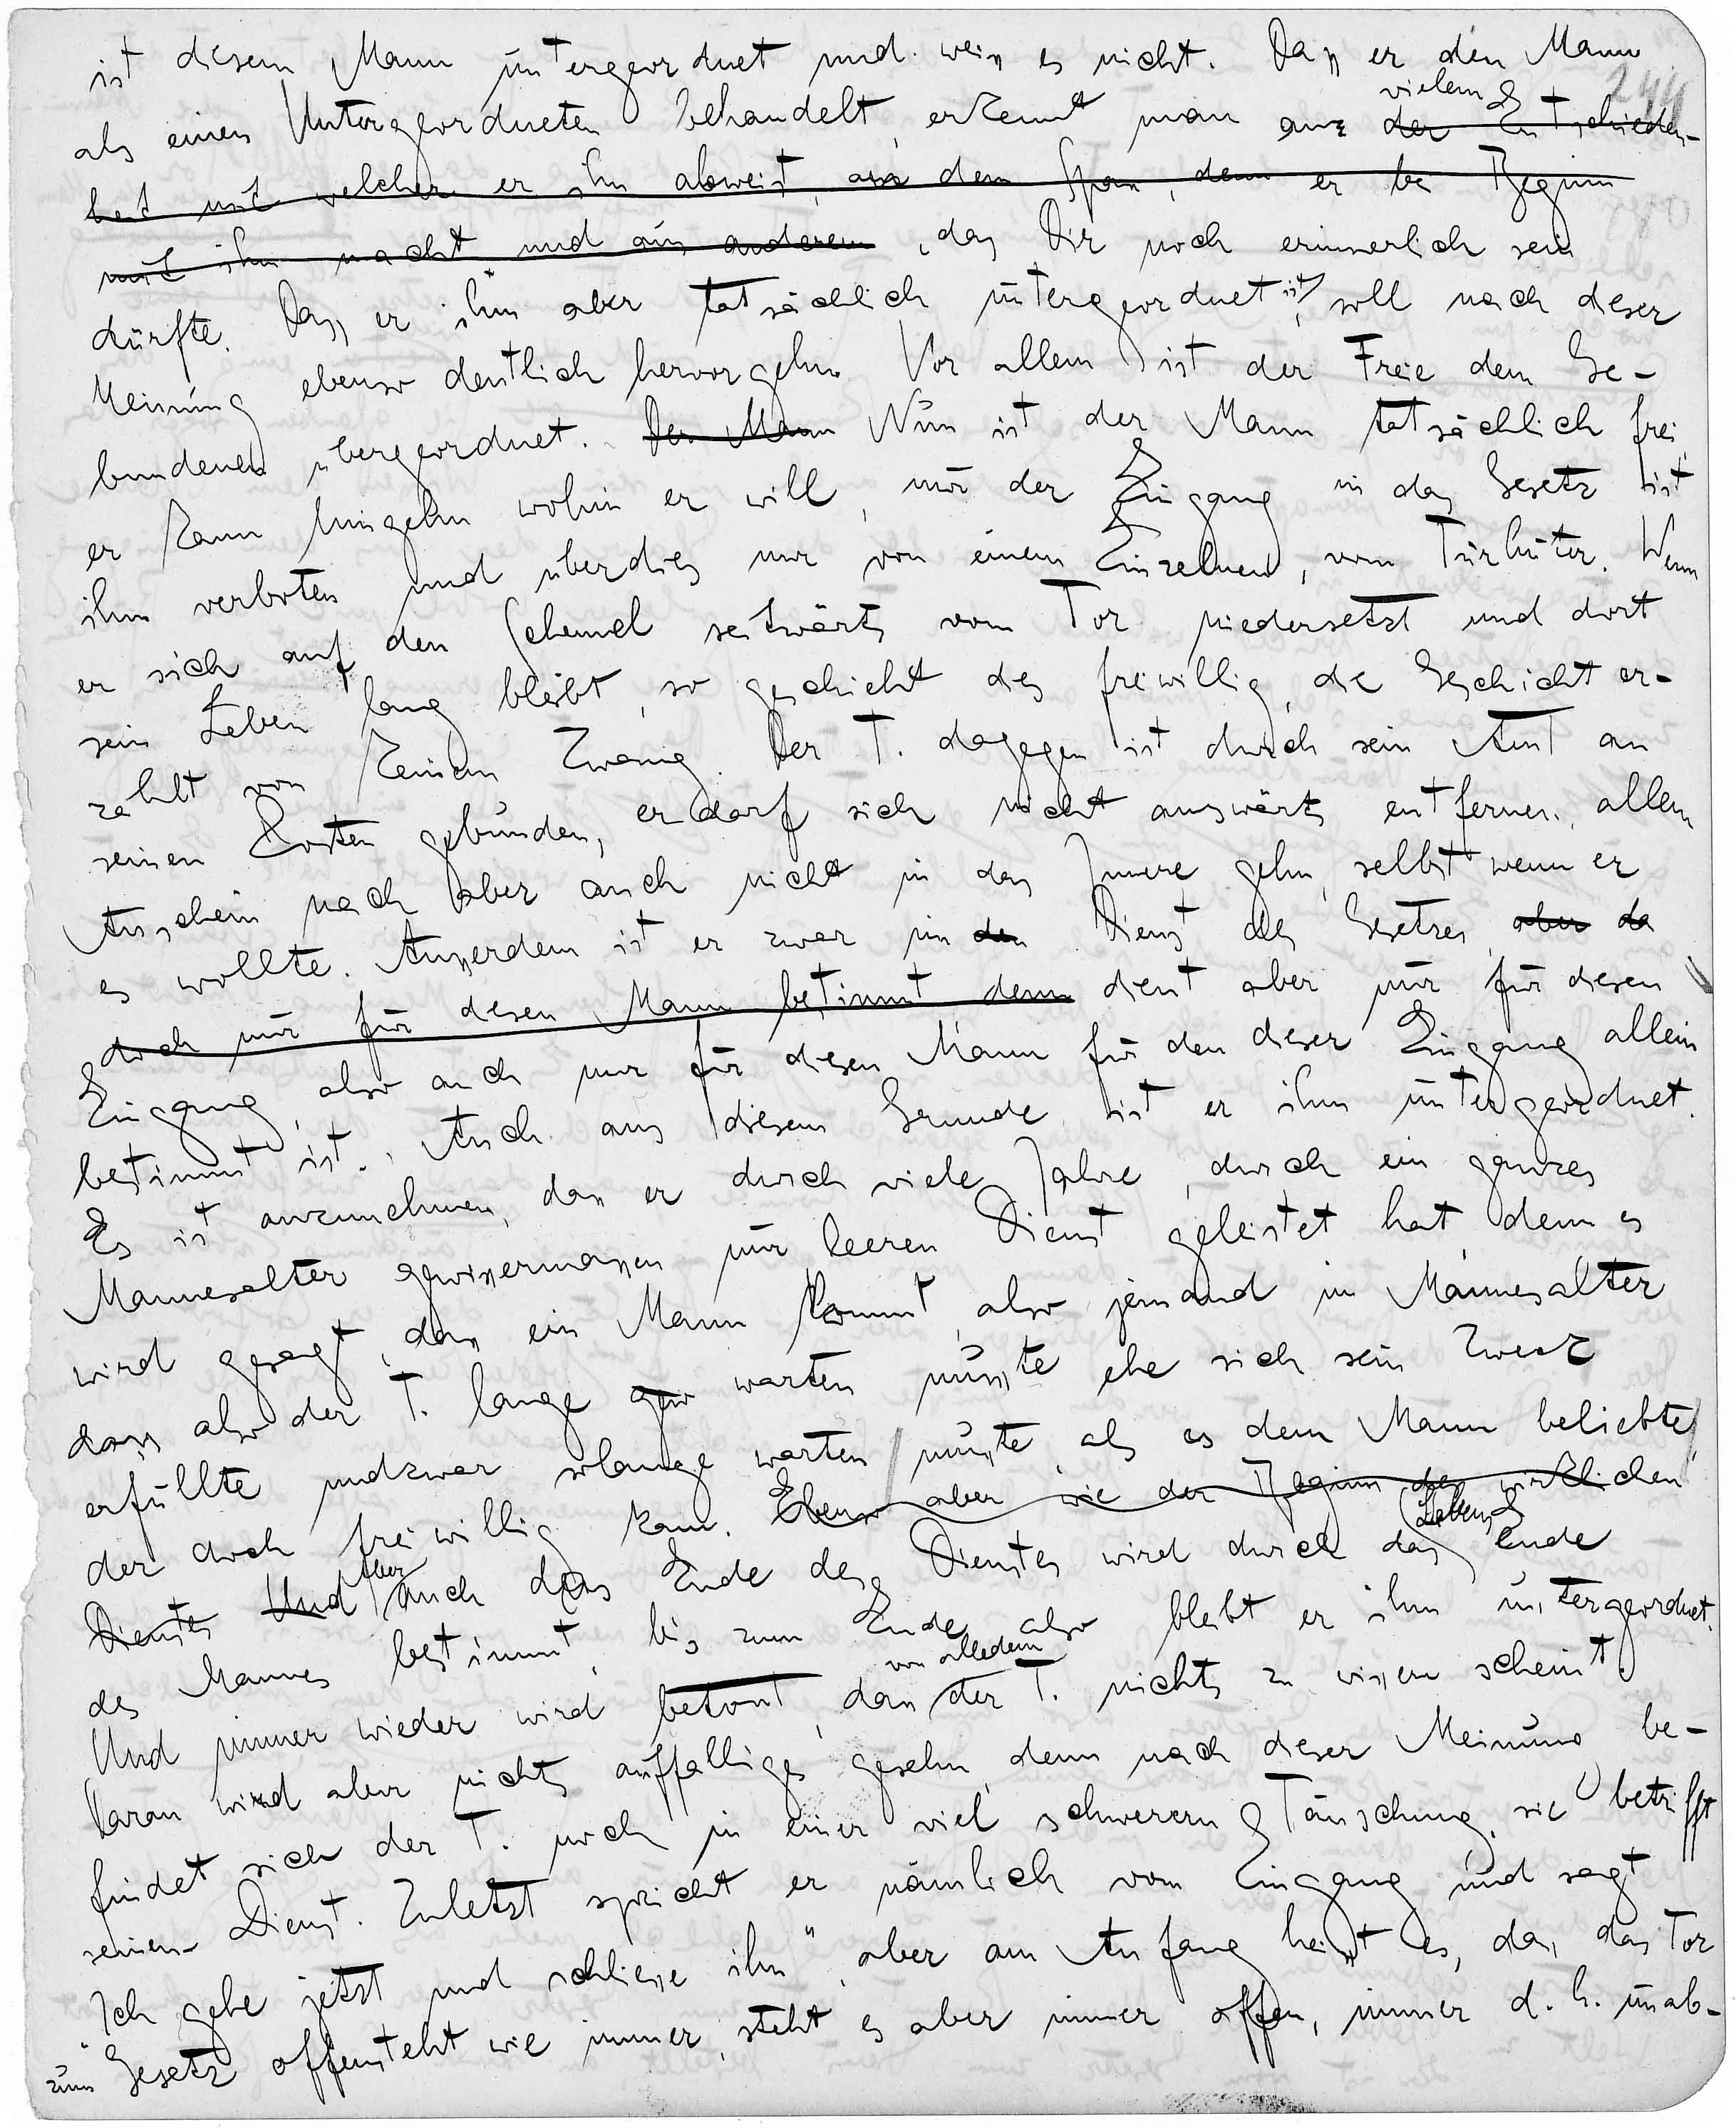 ist diesem Mann untergeordnet und weiss es nicht. Dass er den Mann
244
als einen Untergeordneten behandelt, erkennt man aus vielem der Entschieden-
heit mit welcher er ihn abweist, aus dem Spass, den er bei Beginn
mit ihm macht und aus anderem, das Dir noch erinnerlich sein
dürfte. Dass er ihm aber tatsächlich untergeordnet ist, soll nach dieser
Meinung ebenso deutlich hervorgehn. Vor allem ist der Freie dem Ge-
bundenen übergeordnet. Der Mann Nun ist der Mann tatsächlich frei,
er kann hingehn wohin er will, nur der Eingang in das Gesetz ist
ihm verboten und überdies nur von einem Einzelnen, vom Türhüter. Wenn
er sich auf den Schemel seitwärts vom Tor niedersetzt und dort
sein Leben lang bleibt, so geschieht dies freiwillig, die Geschichte er-
zählt von keinem Zwang. Der T. dagegen ist durch sein Amt an
seinen Posten gebunden, er darf sich nicht auswärts entfernen, allem
Anschein nach aber auch nicht in das Innere gehn, selbst wenn er
es wollte. Ausserdem ist er zwar im den Dienst des Gesetzes, aber da
doch nur für diesen Mann bestimmt denn dient aber nur für diesen
Eingang, also auch nur für diesen Mann für den dieser Eingang allein
bestimmt ist. Auch aus diesem Grunde ist er ihm untergeordnet.
Es ist anzunehmen, dass er durch viele Jahre, durch ein ganzes
Mannesalter gewissermassen nur leeren Dienst geleistet hat, denn es
wird gesagt, dass ein Mann kommt, also jemand im Mannesalter
dass also der T. lange gew warten musste ehe sich sein Zweck
erfüllte undzwar solange warten musste, als es dem Mann beliebte,
der doch freiwillig kam. Ebenso aber wie der Beginn des wirklichen
Dienstes Und Aber auch das Ende des Dienstes wird durch das Lebensende
des Mannes bestimmt, bis zum Ende also bleibt er ihm untergeordnet.
Und immer wieder wird betont, dass von alledem der T. nichts zu wissen scheint.
Daran wird aber nichts auffälliges gesehn, denn nach dieser Meinung be-
findet sich der T. noch in einer viel schwerern Täuschung, sie betrifft
seinen Dienst. Zuletzt spricht er nämlich vom Eingang und sagt
„Ich gehe jetzt und schliesse ihn“, aber am Anfang heisst es, dass das Tor
zum Gesetz offensteht wie immer, steht es aber immer offen, immer d. h. unab-